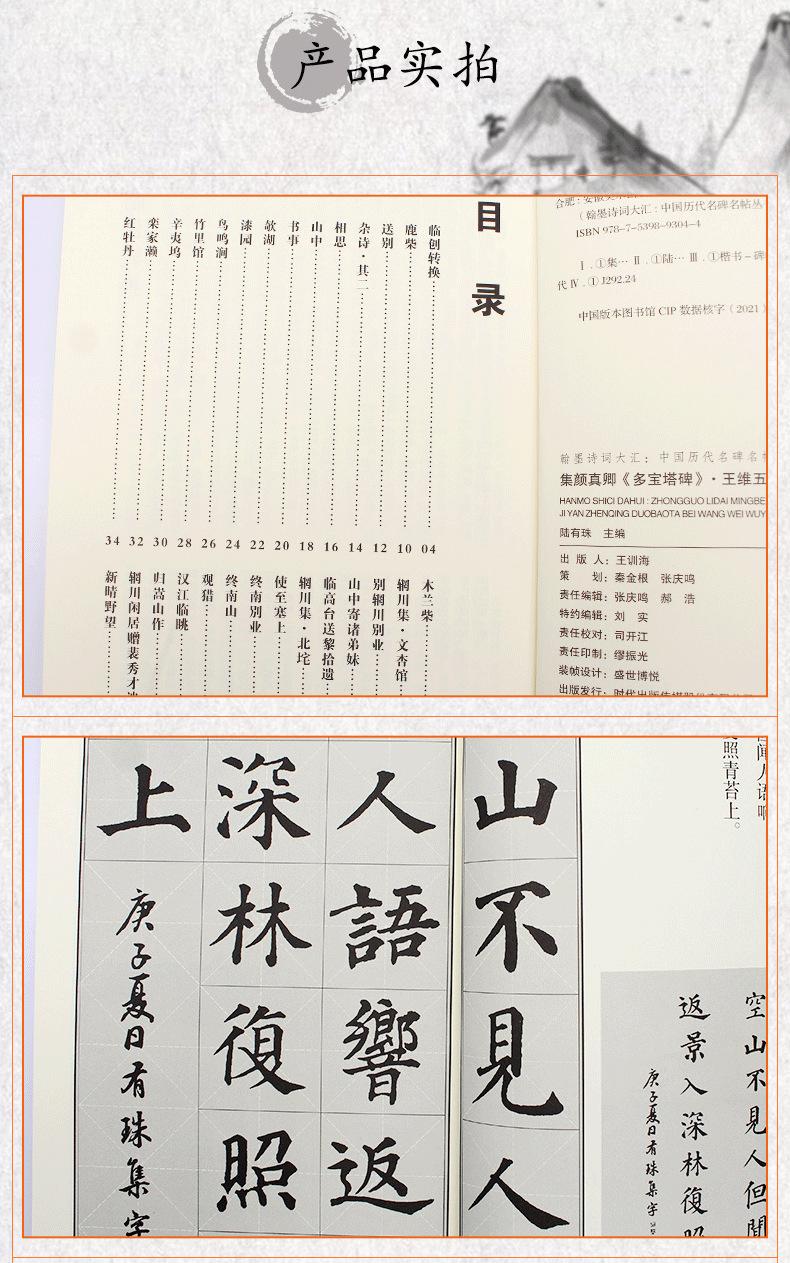 产品实拍
合肥：安徽美术
（翰墨诗词大汇：中国历代名碑名帖丛
ISBN 978-7-5398-9304-4
Ⅰ.①集… Ⅱ.①陆… Ⅲ.①楷书－碑
代Ⅳ.①J292.24
中国版本图书馆CIP数据核字（2021）
翰墨诗词大汇：中国历代名碑名
集颜真卿《多宝塔碑》·王维五
HANMO SHICI DAHUI : ZHONGGUO LIDAI MINGBE
JI YAN ZHENQING DUOBAOTA BEI WANG WEI WUY
陆有珠 主编
出 版 人：王训海
策 划：秦金根 张庆鸣
责任编辑：张庆鸣 郝 浩
特约编辑：刘 实
责任校对：司开江
责任印制：缪振光
装帧设计：盛世博悦
出版发行：时代出版传媒股份有限公司
目录
临创转换……04
鹿柴……10
送别……12
杂诗·其二……14
相思……16
山中……18
书事……20
欹湖……22
漆园……24
鸟鸣涧……26
竹里馆……28
辛夷坞……30
栾家濑……32
红牡丹……34
木兰柴……
辋川集·文杏馆……
别辋川别业……
山中寄诸弟妹……
临高台送黎拾遗……
辋川集·北垞……
使至塞上……
终南别业……
终南山……
观猎……
汉江临眺……
归嵩山作……
辋川闲居赠裴秀才
新晴野望……
闻人语响
照青苔上。
空山不见人但聞
返景入深林復照
庚子夏日有珠集字
山不見人
人語響返
深林復照
上
庚子夏日有珠集字